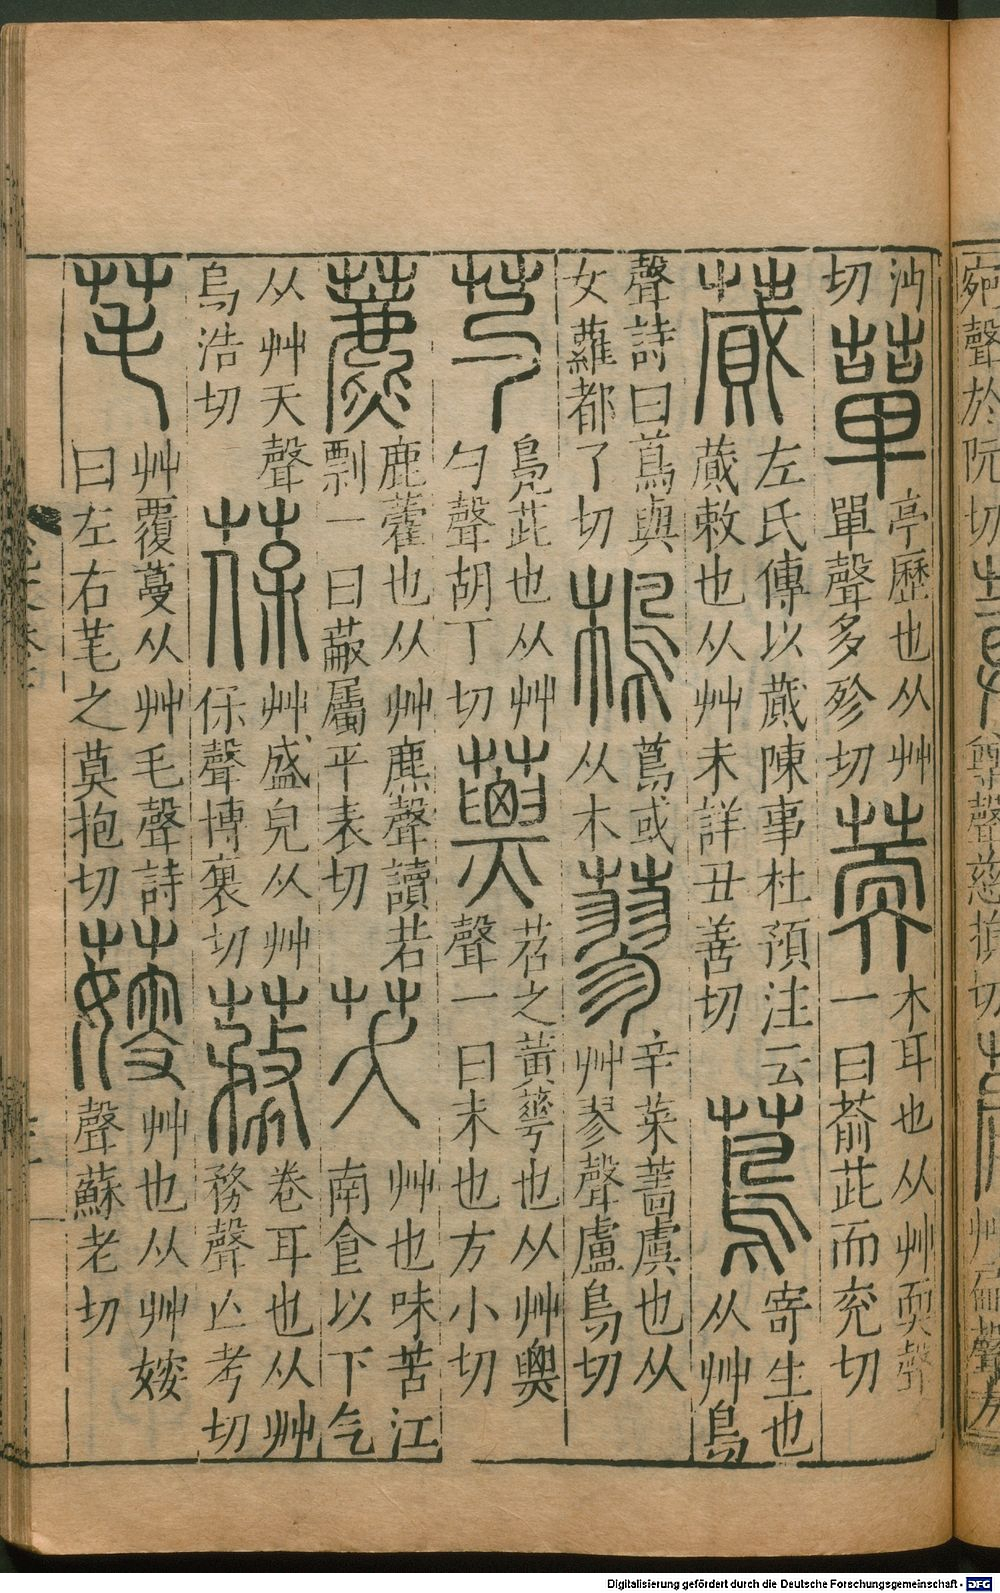 宛聲於阮切
汕
切
蕇
亭歷也从艸
單聲多殄切
䓴
木耳也从艸耎聲
一曰萮茈而兖切
蕆
左氏傳以蕆陳事杜預注云
蕆敕也从艸未詳丑善切
蔦
寄生也
从艸鳥
聲詩曰蔦與
女蘿都了切
樢
蔦或
从木
蓼
辛菜薔虞也从
艸翏聲盧鳥切
芍
鳧茈也从艸
勺聲胡了切
蔈
苕之黃蕚也从艸㶾
聲一曰末也方小切
藨
鹿藿也从艸麃聲讀若
剽一曰蔽屬平表切
芺
艸也味苦江
南食以下气
从艸夭聲
烏浩切
葆
艸盛皃从艸
保聲博裒切
蓩
卷耳也从艸
務聲亡考切
芼
艸覆蔓从艸毛聲詩
曰左右芼之莫抱切
䕅
艸也从艸㛮
聲蘇老切
Digitalisierung gefördert durch die Deutsche Forschungsgemeinschaft - DFG